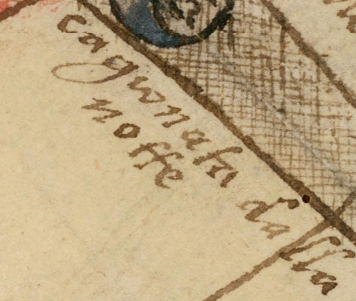 cagionata dalla
notte